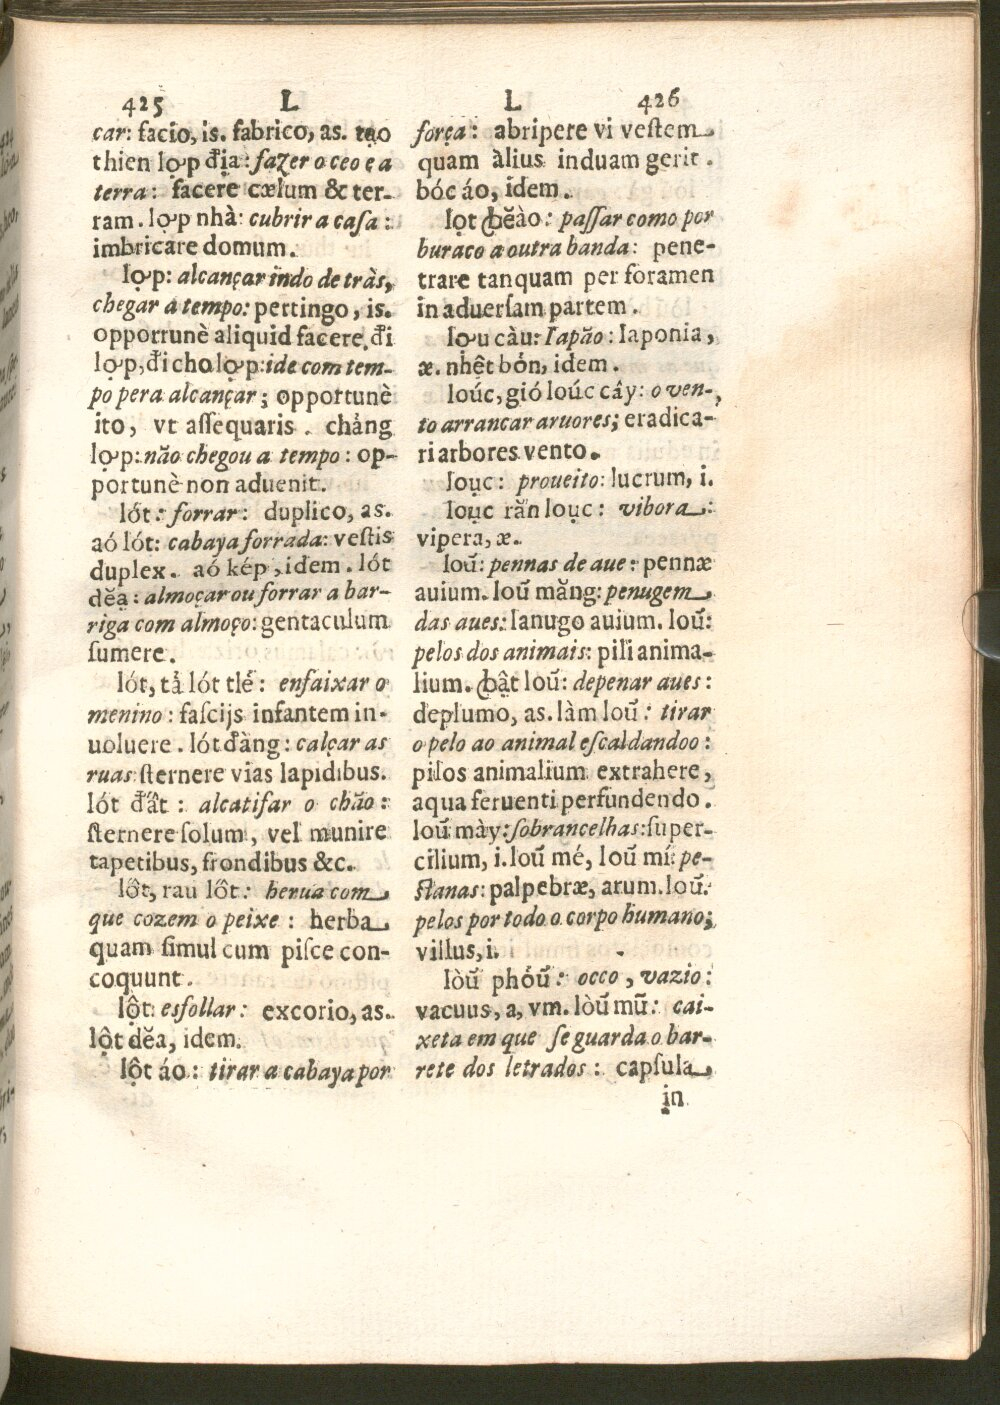 425 L
car: facio, is. fabrico, as. tạo
thien lợp địa: fazer o ceo e a
terra: facere cœlum & ter-
ram. lợp nhà: cubrir a caſa:
imbricare domum.
lợp: alcançar indo de tràs,
chegar a tempo: pertingo, is.
opportunè aliquid facere. đi
lợp, đi cho lợp: ide com tem-
po pera alcançar; opportunè
ito, vt aſſequaris. chảng
lợp: não chegou a tempo: op-
portunè non aduenit.
lót: forrar: duplico, as.
aó lót: cabaya forrada: veſtis
duplex. aó kép, idem. lót
dĕạ: almoçar ou forrar a bar-
riga com almoço: gentaculum
ſumere.
lót, tả lót tlẻ: enfaixar o
menino: faſcijs infantem in-
uoluere. lót đàng: calçar as
ruas ſternere vias lapidibus.
lót đất: alcatifar o chão:
ſternere ſolum, vel munire
tapetibus, frondibus &c.
lốt, rau lốt: herua com
que cozem o peixe: herba
quam ſimul cum piſce con-
coquunt.
lột: esfollar: excorio, as.
lột dĕa, idem.
lột áo: tirar a cabaya por
L 426
força: abripere vi veſtem
quam àlius induam gerit.
bóc áo, idem.
lọt ꞗĕào: paſſar como por
buraco a outra banda: pene-
trare tanquam per foramen
in aduerſam partem.
lơu càu: Iapão: Iaponia,
æ. nhệt bỏn, idem.
loúc, gió loúc cây: o ven-
to arrancar aruores; eradica-
ri arbores vento.
loục: proueito: lucrum, i.
loục rằn loục: vibora:
vipera, æ.
loũ: pennas de aue: pennæ
auium. loũ măng: penugem
das aues: lanugo auium. loũ:
pelos dos animais: pili anima-
lium. ꞗật loũ: depenar aues:
deplumo, as. làm loũ: tirar
o pelo ao animal eſcaldandoo:
pilos animalium extrahere,
aqua feruenti perfundendo.
loũ mày: ſobrancelhas: ſuper-
cilium, i. loũ mé, loũ mí: pe-
ſtanas: palpebræ, arum. loũ:
pelos por todo o corpo humano;
villus, i.
lòũ phóũ: occo, vazio:
vacuus, a, vm. lòũ mũ: cai-
xeta em que ſe guarda o bar-
rete dos letrados: capſula
in